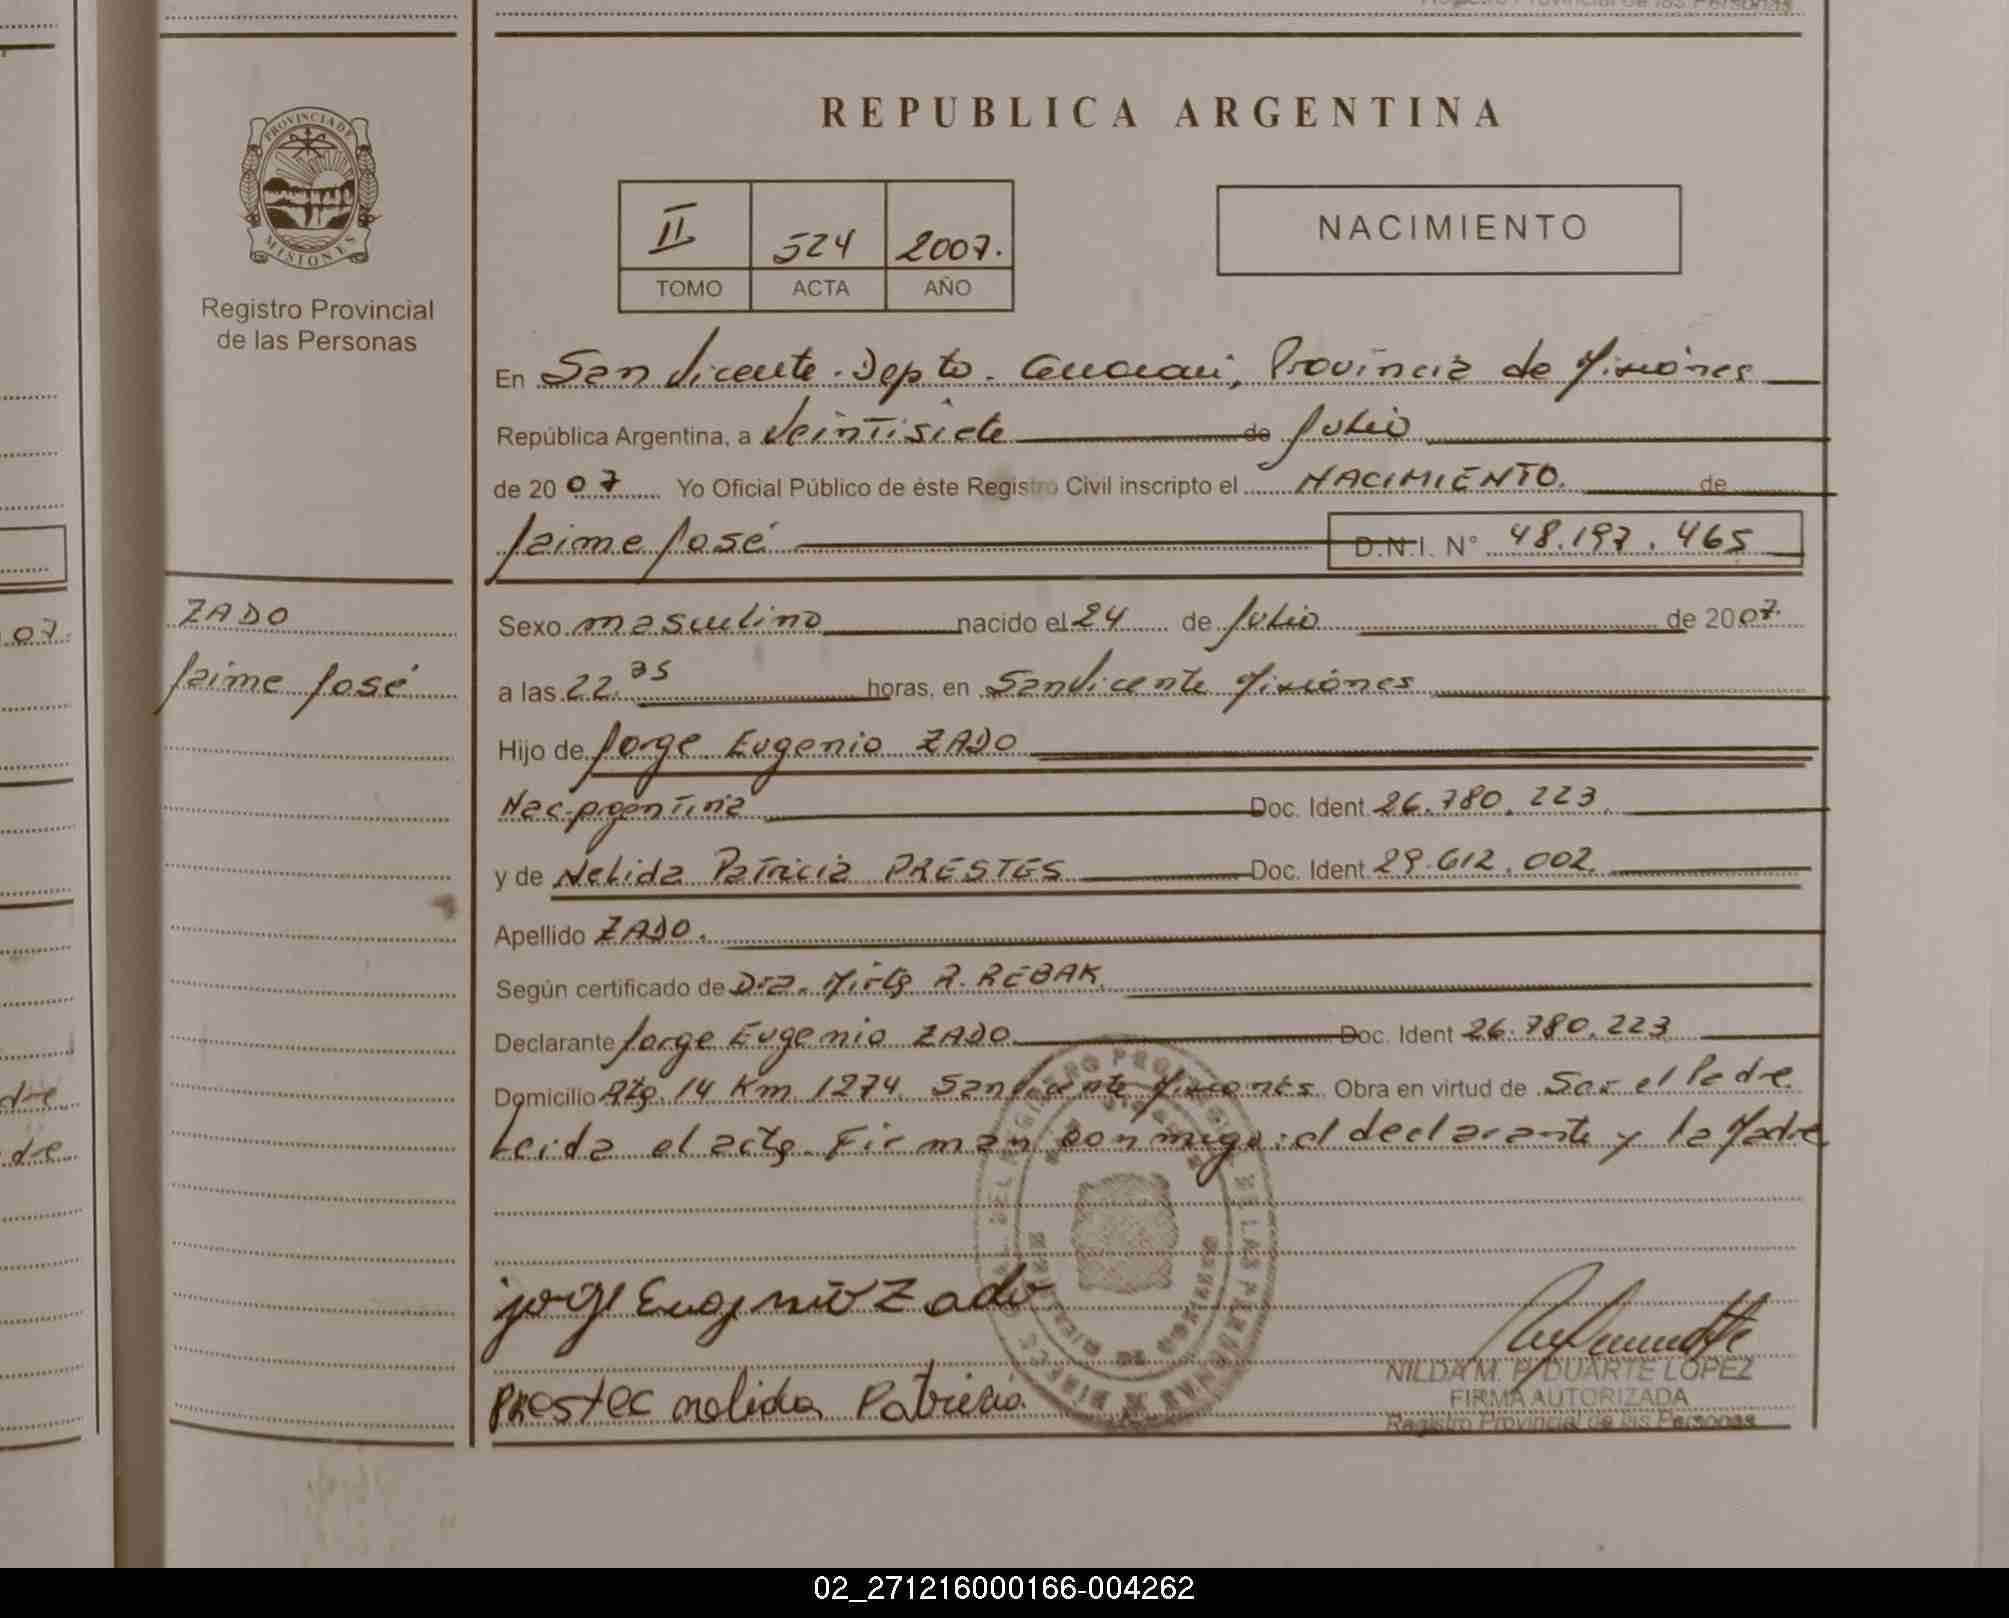 REPUBLICA ARGENTINA
PROVINCIA DE
MISIONES
Registro Provincial
de las Personas
II 524 2007.
TOMO ACTA AÑO
NACIMIENTO
En San Vicente. Depto. Guarani, Provincia de Misiones
República Argentina, a Veintisiete de Julio
de 2007 Yo Oficial Público de éste Registro Civil inscripto el NACIMIENTO. de
Jaime José D.N.I. N° 48.197.465
ZADO
Jaime José
Sexo masculino nacido el 24 de Julio de 2007.
a las 22.35 horas, en San Vicente Misiones
Hijo de Jorge Eugenio ZADO
Nac. Argentina Doc. Ident. 26.780.223.
y de Nelida Patricia PRESTES Doc. Ident. 29.612.002.
Apellido ZADO.
Según certificado de Dra. Mirta R. REBAK.
Declarante Jorge Eugenio ZADO Doc. Ident 26.780.223
Domicilio Rta. 14 Km. 1274. San Vicente Misiones. Obra en virtud de Ser el Padre.
Leida el acta. Firman conmigo: el declarante y la Madre
jorge Eugenio Zado
Prestec nelida Patricia
NILDA M. P. DUARTE LOPEZ
FIRMA AUTORIZADA
Registro Provincial de las Personas
02_271216000166-004262